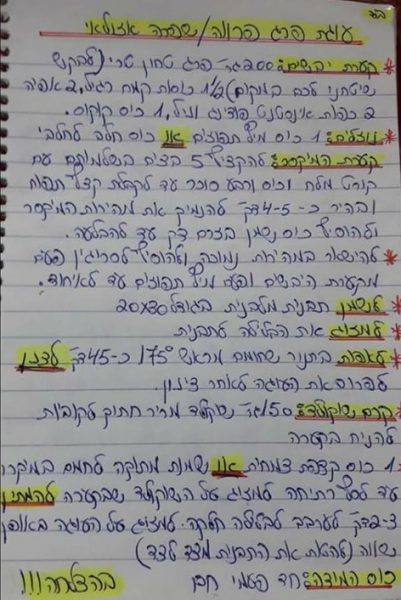 בס"ד
עוגת פרג פרווה/שפרה אזולאי
* קערת יבשים: 200 גר' פרג טחון טרי (לבקש
שיטחנו לכם במקום) 1/2 1 כוסות קמח רגיל, 2 אפיה
2 כפות אינסטנט פודינג וניל, 1 כוס קוקוס.
* נוזלים: 1 כוס מיץ תפוזים או כוס חלב לחלבי
* קערת המיקסר: להקציף 5 ביצים בשלמותם עם
קורט מלח וכוס ורבע סוכר עד לקבלת קצף תפוח
ובהיר כ- 4-5 דק' להנמיך את מהירות המיקסר
ולהוסיף כוס שמן בזרם דק עד להבלעה.
* להישאר במהירות נמוכה ולהוסיף לסירוגין פעם
מקערת היבשים ופעם מיץ תפוזים עד לאיחוד.
* לשמן תבנית מלבנית בגודל 20x30
* למזוג את הבלילה לתבנית
* לאפות בתנור שחומם מראש 175° כ-45 דק' לצנן
לפרוס את העוגה לאחר צינון.
* קרם שוקולד: 150 גר' שוקולד מריר חתוך לקוביות
להניח בקערה
1 כוס קצפת צמחית או שמנת מתוקה לחמם במיקרו
עד לסף רתיחה למזוג על השוקולד שבקערה להמתין
2-3 דק' לערבב לבלילה חלקה. למזוג על העוגה באופן
שווה (להטות את התבנית מצד לצד)
כוס המידה: חד פעמי חם בהצלחה!!!